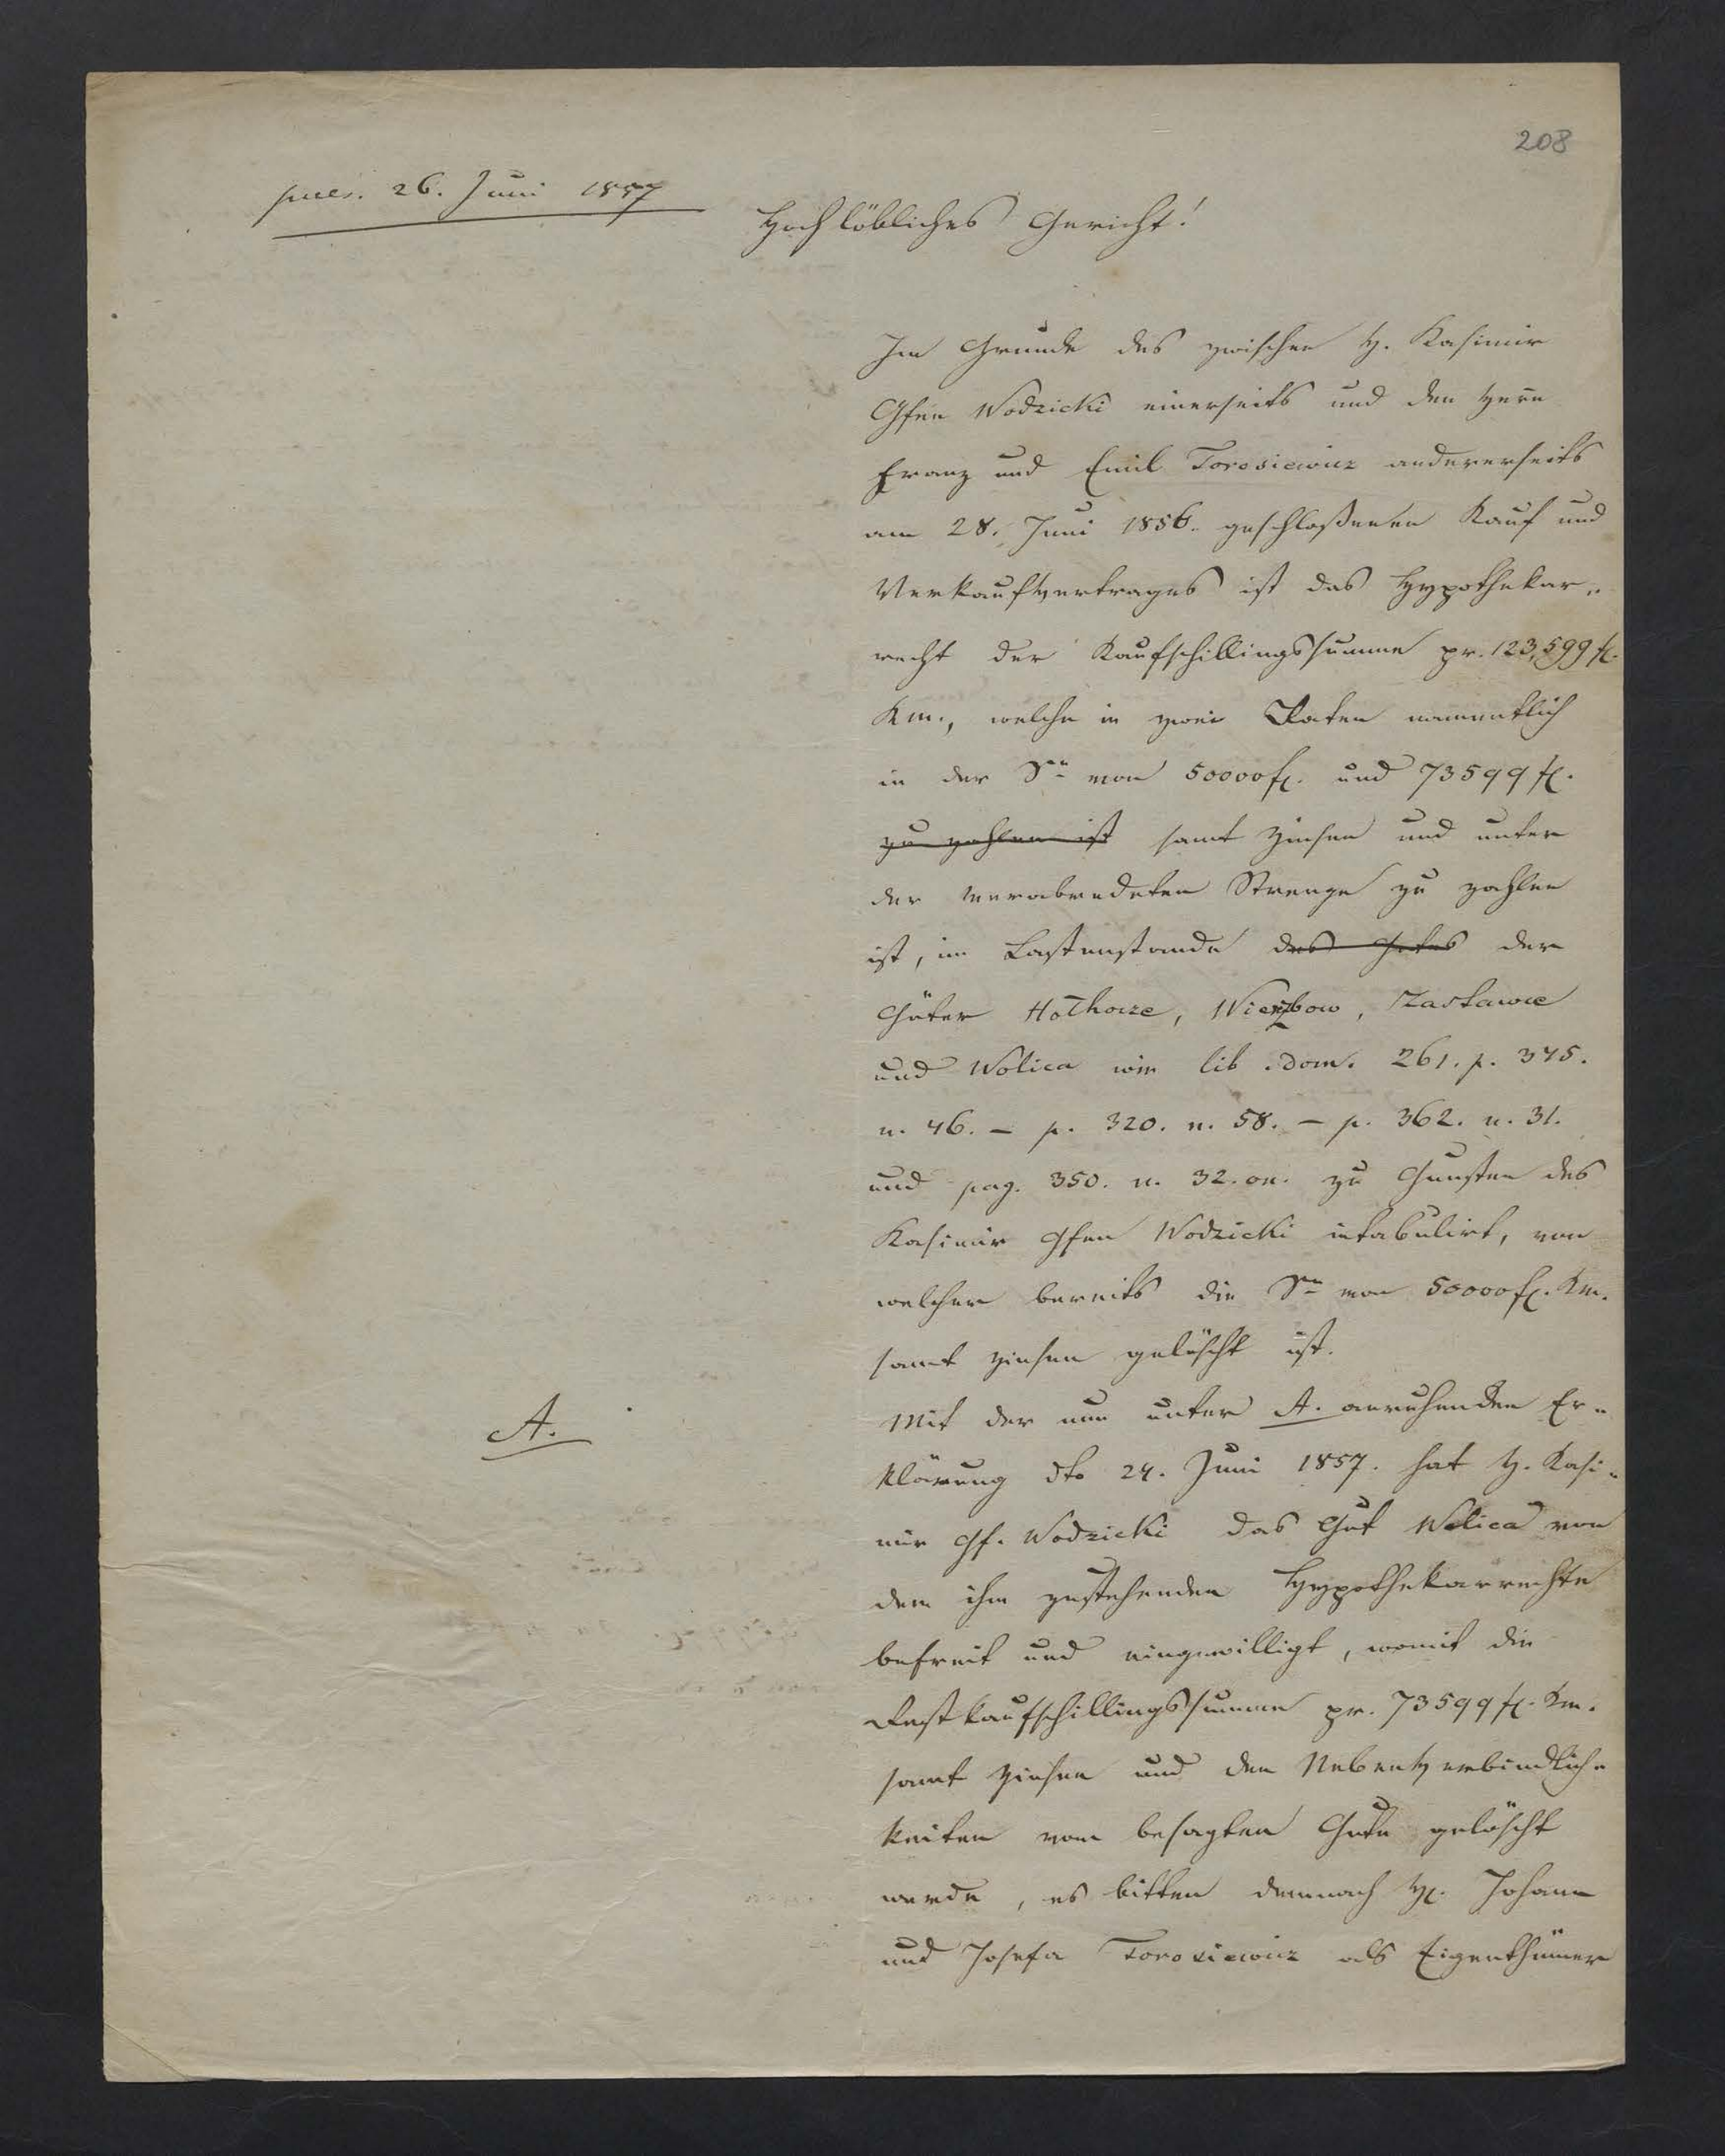 208
pres. 26. Juni 1857
Hochlöbliches Gericht!
Im Grunde des zwischen H. Kasimir
Gfen Wodzicki einerseits und den Herrn
Franz und Emil Torosiewicz andererseits
am 28. Juni 1856. geschloßenen Kauf und
Verkaufvertrages ist das Hypothekar„
recht der Kaufschillingssumme pr. 123,599 fl.
Km., welche in zwei Raten namentlich
in der Sũ von 50000 fl. und 73599 fl.
zu zahlen ist samt Zinsen und unter
der verabredeten Strenge zu zahlen
ist, im Lastenstande des Gutes der
Güter Hołhocze, Wierzbow, Zastawce
und Wolica wie lib. dom. 261. p. 375.
n. 46. – p. 320. n. 58. – p. 362. n. 31.
und pag. 350. n. 32. on. zu Gunsten des
Kasimir Gfen Wodzicki intabulirt, von
welcher bereits die Sũ von 50000 fl. Km.
samt Zinsen gelöscht ist.
Mit der nun unter A. anruhenden Er„
A.
klärung dto 24. Juni 1857. hat H. Kasi„
mir Gf. Wodzicki das Gut Wolica von
dem ihm zustehenden Hypothekarrechte
befreit und eingewilligt, womit die
Restkaufschillingssumme pr. 73599 fl. Km.
samt Zinsen und den Nebenverbindlich„
keiten vom besagten Gute gelöscht
werde, es bitten demnach H. Johann
und Josefa Torosiewicz als Eigenthümer